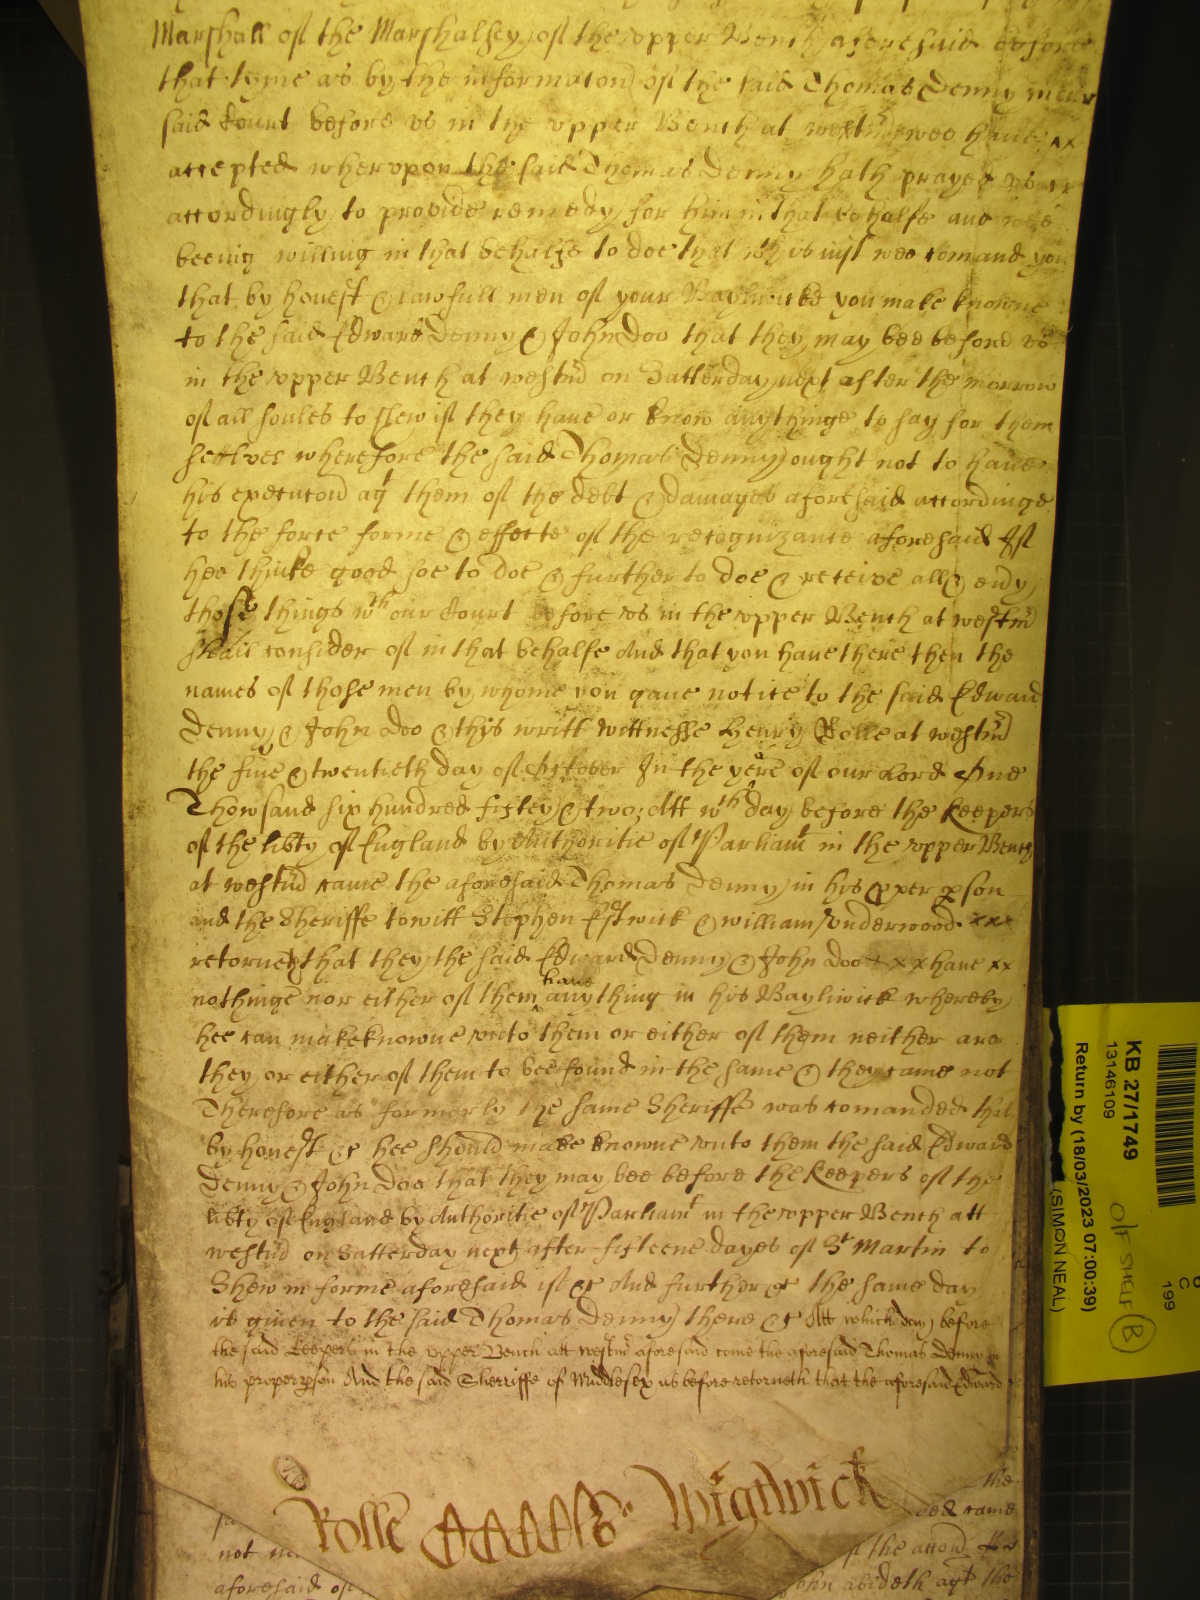 Marshall of the Marshalsey of the upper Bench aforesaid before
that tyme as by the informacon of the said Thomas Denny in our
said Court before us in the upper Bench at westm wee have xx
accepted wherupon the said Thomas Denny hath prayed us
accordingly to provide remedy for him in that behalfe and wee
beeing willing in that behalfe to doe that wch is iust wee comand you
that by honest & lawfull men of your Bayliwicke you make knowne
to the said Edward Denny & John Doo that they may bee before us
in the upper Bench at westm on Satterday next after the morrow
of all soules to shew if they have or know anythinge to say for them
seelves wherefore the said Thomas Denny ought not to have
his execucon agt them of the debt & damages aforesaid accordinge
to the force forme & effecte of the recognizance aforesaid If
hee thinke good soe to doe & further to doe & receive all & every
those things wch our Court before us in the upper Bench at westm
shall consider of in that behalfe And that you have there then the
names of those men by whome you gave notice to the said Edward
Denny & John Doo & this writt wittnesse Henry Rolle at westm
the five & twentieth day of October In the yeare of our Lord One
Thowsand six hundred fiftey & two; Att wch day before the Keepers
of the libty of England by Authoritie of Parliamt in the upper Bench
at westm came the aforesaid Thomas Denny in his pper pson
and the Sheriffe towitt Stephen Estwick & william Underwood xxx
retorneth that they the said Edward Denny & John Doo x x x have xx
nothinge nor either of them have any thing in his Bayliwick whereby
hee can make knowne unto them or either of them neither are
they or either of them to bee found in the same & they came not
Therefore as formerly the same Sheriffe was comanded that
by honest &c hee should make knowne unto them the said Edward
Denny & John Doo that they may bee before the Keepers of the
libty of England by Authoritie of Parliamt in the upper Bench att
westm on Satterday next after fifteene dayes of St Martin to
Shew in forme aforesaid if &c And further &c the same day
is given to the said Thomas Denny there &c Att which day before
the said Keepers in the upper Bench att westm aforesaid come the aforesaid Thomas Denny in
his proper pson And the said Sherriffe of Middlesex as before retorneth that the aforesaid Edward
Rolle Wightwick
the
ded came
not
the
aforesaid of
John abideth agt the
KB 27/1749
13146109
Return by (18/03/2023 07:00:39)
(SIMON NEAL)
C
199
B